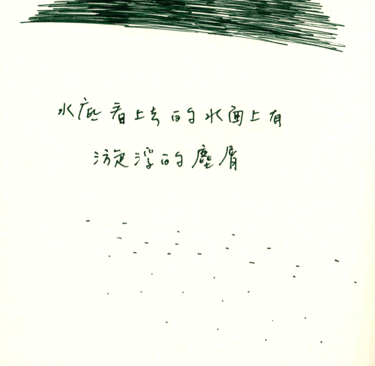 水底看上去的水面上有
漩浮的塵屑